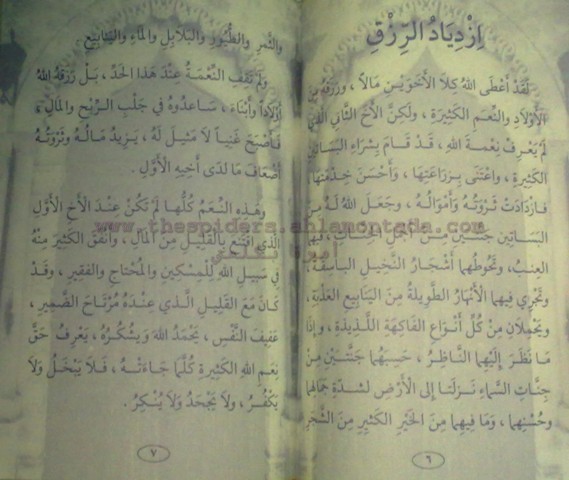 ازْدِيَادُ الرِّزْقِ
لَقَدْ أَعْطَى اللهُ كِلَا الأَخَوَيْنِ مَالاً ، وَرَزَقَهُمَا
الأَوْلَادَ وَالنِّعَمَ الكَثِيرَةَ ، وَلَكِنَّ الأَخَ الثَّانِي الَّذِي
لَمْ يَعْرِفْ نِعْمَةَ اللهِ ، قَدْ قَامَ بِشْرَاءِ البَسَاتِينِ
الكَثِيرَةِ ، وَاعْتَنَى بِزِرَاعَتِهَا ، وَأَحْسَنَ خِدْمَتَهَا ،
فَازْدَادَتْ ثَرْوَتُهُ وَأَمْوَالُهُ ، وَجَعَلَ اللهُ لَهُ مِنَ
البَسَاتِينِ جَنَّتَيْنِ مِنْ أَجْمَلِ الجِنَانِ ، فِيهِمَا
العِنَبُ ، وَتَحُوطُهُمَا أَشْجَارُ النَّخِيلِ البَاسِقَةُ ،
وَتَجْرِي فِيهِمَا الأَنْهَارُ الطَّوِيلَةُ مِنَ اليَنَابِيعِ العَذْبَةِ ،
وَيَحْمِلَانِ مِنْ كُلِّ أَنْوَاعِ الفَاكِهَةِ اللَّذِيذَةِ ، وَإِذَا
مَا نَظَرَ إِلَيْهِمَا النَّاظِرُ ، حَسِبَهُمَا جَنَّتَيْنِ مِنْ
جِنَّاتِ السَّمَاءِ نَزَلَتَا إِلَى الأَرْضِ لِشِدَّةِ جَمَالِهِمَا
وَحُسْنِهِمَا ، وَمَا فِيهِمَا مِنَ الخَيْرِ الكَثِيرِ مِنَ الشَّجَرِ
٦
والثَّمَرِ والطُّيُورِ والبَلَابِلِ والمَاءِ واليَنَابِيعِ .
وَلَمْ تَقِفِ النِّعْمَةُ عِنْدَ هَذَا الحَدِّ ، بَلْ رَزَقَهُ اللهُ
أَوْلَاداً وأَبْنَاءً ، سَاعَدُوهُ فِي جَلْبِ الرِّبْحِ والمَالِ ،
فَأَصْبَحَ غَنِياً لاَ مَثِيلَ لَهُ ، يَزِيدُ مَالُهُ وَثَرْوَتُهُ
أَضْعَافَ مَا لَدَى أَخِيهِ الأَوَّلِ .
وَهَذِهِ النِّعَمُ كُلُّهَا لَمْ تَكُنْ عِنْدَ الأَخِ الأَوَّلِ
الَّذِي اقْتَنَعَ بِالقَلِيلِ مِنَ المَالِ ، وأَنْفَقَ الكَثِيرَ مِنْهُ
فِي سَبِيلِ اللهِ لِلْمِسْكِينِ والمُحْتَاجِ والفَقِيرِ ، وَقَدْ
كَانَ مَعَ القَلِيلِ الَّذِي عِنْدَهُ مُرْتَاحَ الضَّمِيرِ ،
عَفِيفَ النَّفْسِ ، يَحْمَدُ اللهَ وَيَشْكُرُهُ ، يَعْرِفُ حَقَّ
نِعَمِ اللهِ الكَثِيرَةِ كُلَّمَا جَاءَتْهُ ، فَلاَ يَبْخَلُ وَلاَ
يَكْفُرُ ، ولاَ يَجْحَدُ وَلاَ يُنْكِرُ .
٧
www.thespiders.ahlamontada.com